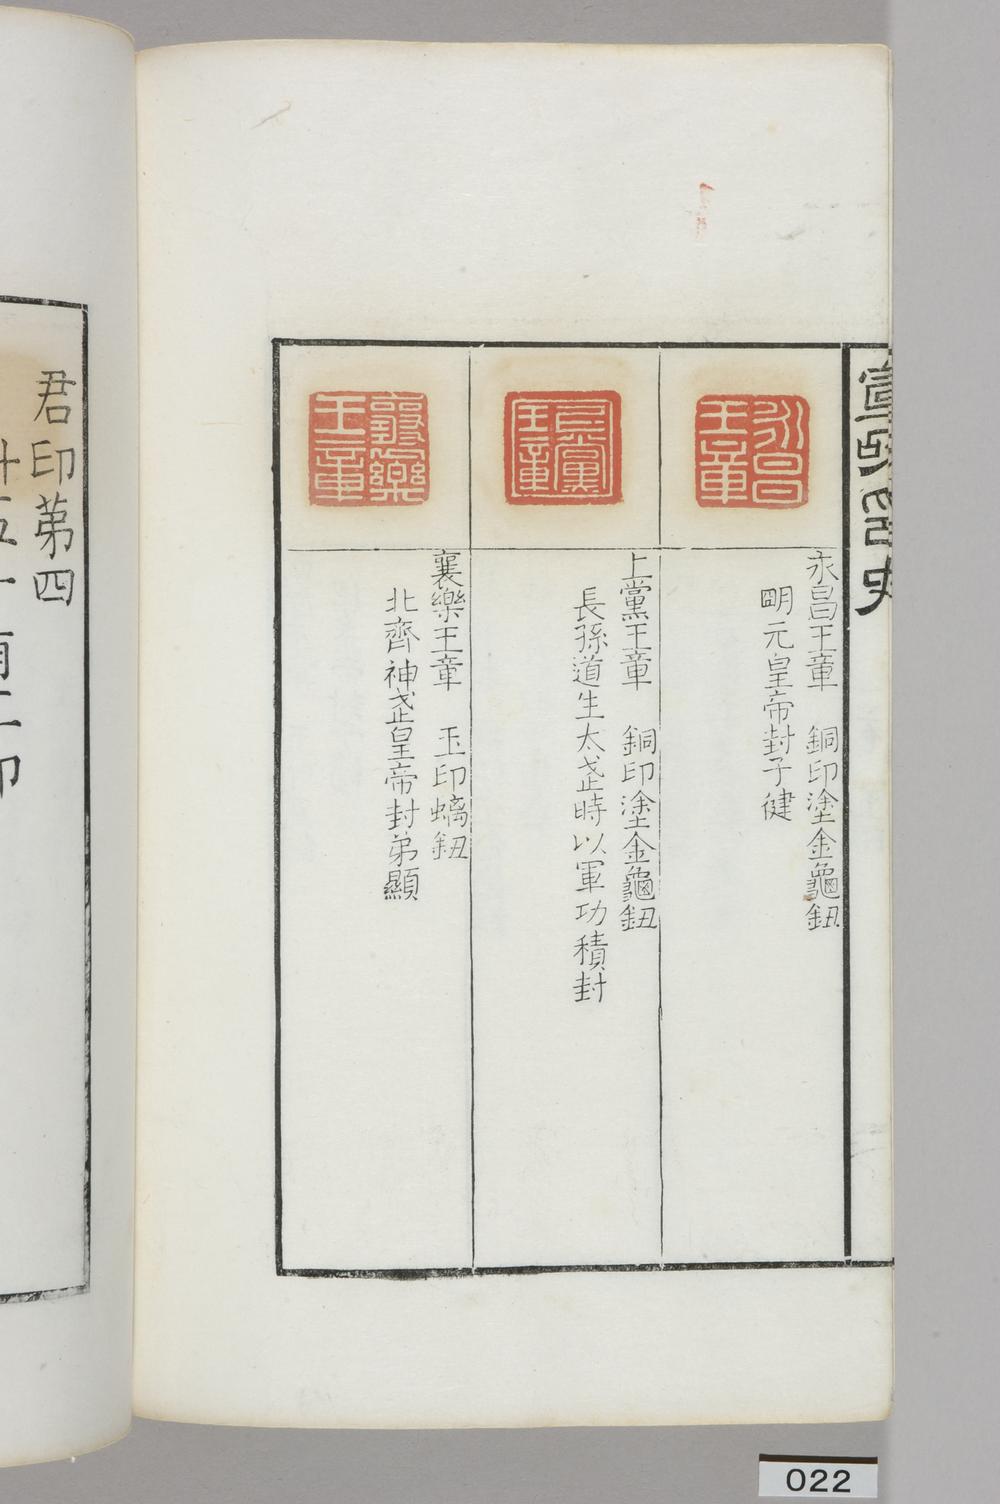 宣和印史
永昌王章
永昌王章 銅印塗金龜鈕
明元皇帝封子健
上黨王章
上黨王章 銅印塗金龜鈕
長孫道生太武時以軍功積封
襄樂王章
襄樂王章 玉印螭鈕
北齊神武皇帝封弟顯
君印第四
022